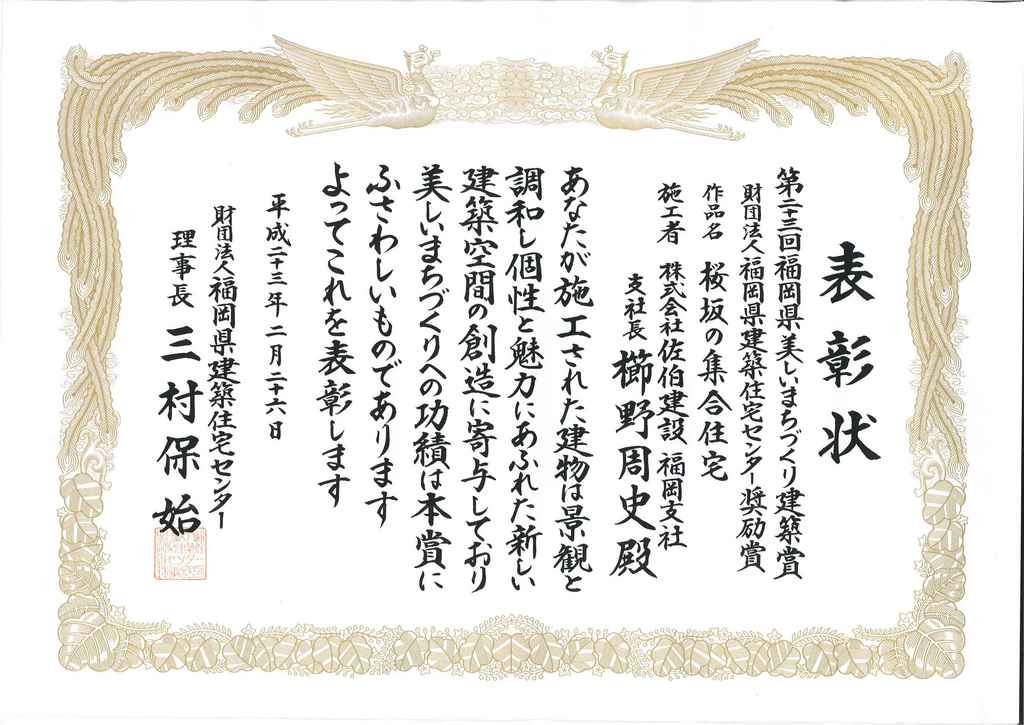 表彰状
第二十三回福岡県美しいまちづくり建築賞
財団法人福岡県建築住宅センター奨励賞
作品名 桜坂の集合住宅
施工者 株式会社佐伯建設 福岡支社
支社長 櫛野周史殿
あなたが施工された建物は景観と
調和し個性と魅力にあふれた新しい
建築空間の創造に寄与しており
美しいまちづくりへの功績は本賞に
ふさわしいものであります
よってこれを表彰します
平成二十三年二月二十六日
財団法人福岡県建築住宅センター
理事長 三村保始